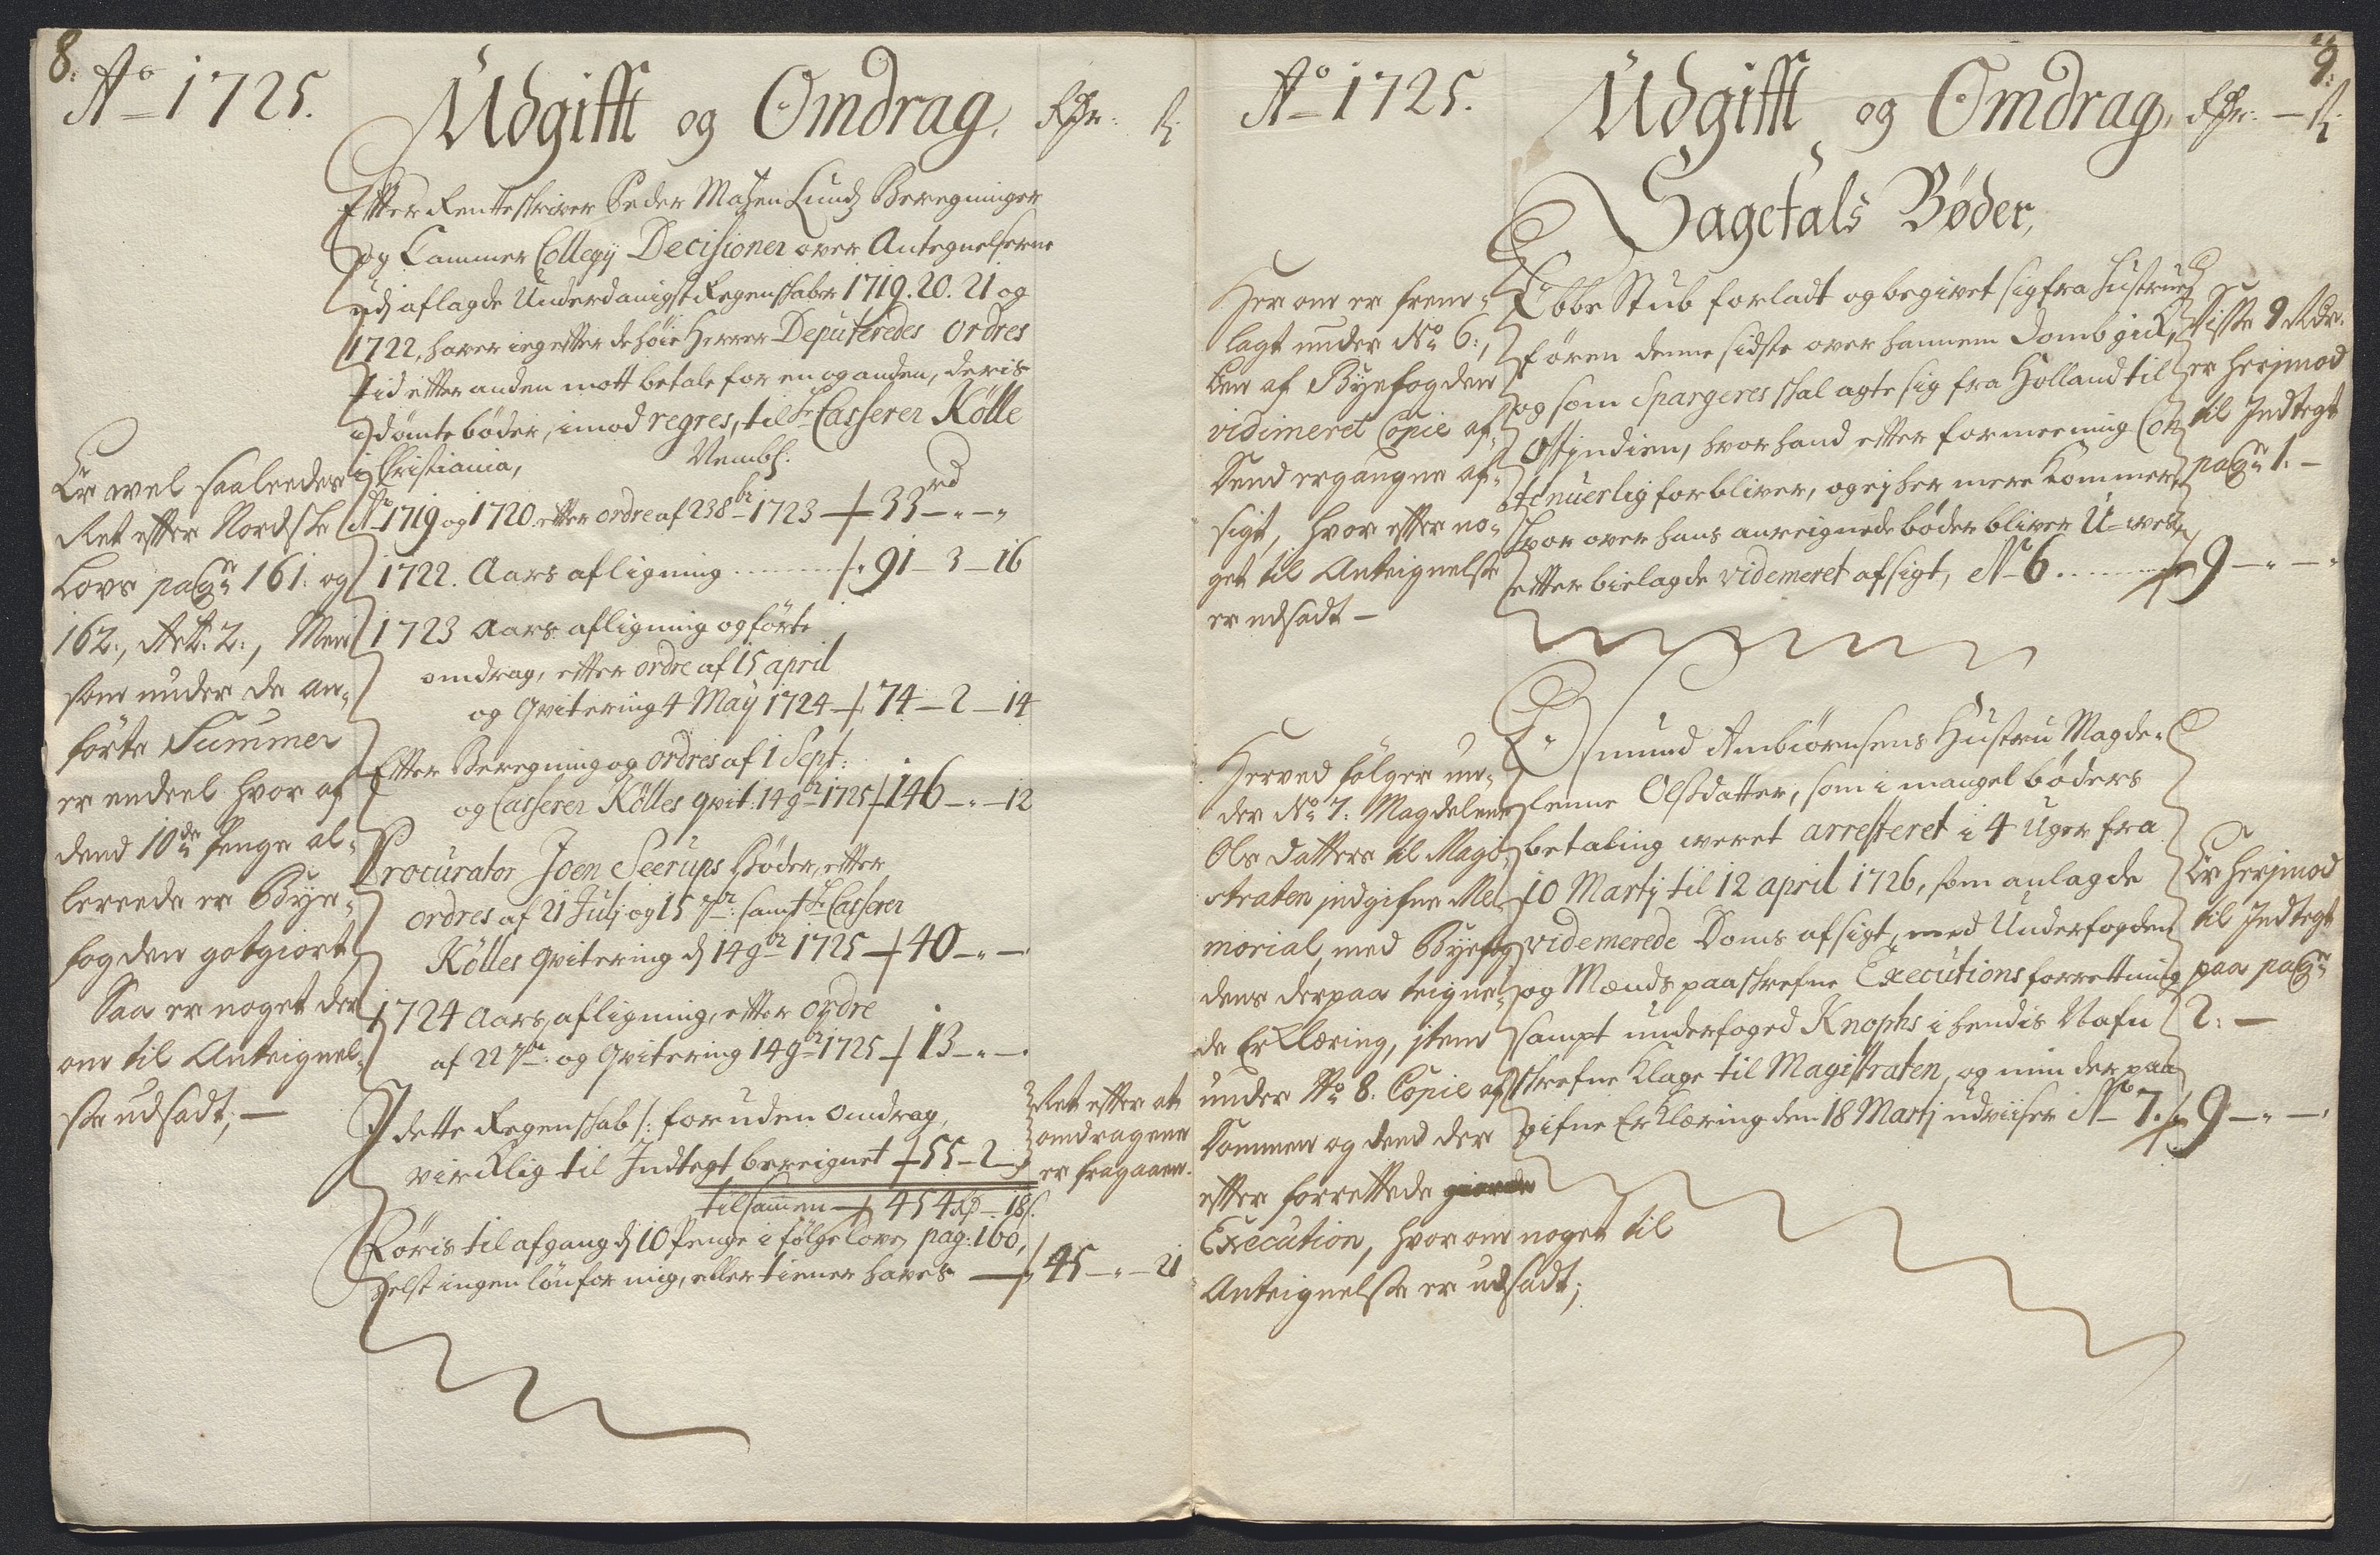 8.
Ao 1725.
Udgifft og Omdrag, Rdr: ß
Efter Renteskriver Peder Matzen Lunds Beregninger
og Cammer Collegij Decisioner over Antegnelserne
udj aflagde Underdanigst Regenskaber 1719. 20. 21 og
1722, haver ieg efter de høie Herrer Deputeredes ordres
tid efter anden mott betale for en og anden, deris
idømte bøder, imod regres, til Hr Casserer Kölle
i Christiania, Nembl:
Ao 1719 og 1720 efter ordre af 23 8br 1723 33 rd - „ - „
1722. Aars afligning ... 91 - 3 - 16
1723 Aars afligning og førte
omdrag, efter ordre af 15 april
og qvitering 4 Maÿ 1724 74 - 2 - 14
Efter Beregning og ordres af 1 Sept:
og Casserer Kölles qvit: 14 9br 1725 146 - „ - 12
Procurator Joen Seerups Bøder, efter
ordres af 21 Julj og 15 7br: samt Hr Casserer
Kölles qvitering d 14 9br 1725 40 - „ -
1724 Aars afligning, efter ordre
af 22 7br: og qvitering 14 9br 1725 13 - „ -
I dette Regenskab /: foruden omdrag,
virklig til Indtegt bereignet 55 - 2 -
tilsammen 454 Rd - 18 ß.
Føris til afgang d 10 Penge i følge Loven pag: 160,
helst ingen løn for mig, eller tiener haves 45 - „ - 21
Er vel saaleedes
Ret efter Nordske
Lovs pagn 161. og
162., Art: 2., Men
som under de an-
førte Summer
er endeel hvor af
dend 10de Penge al-
lereede er Bye-
fogden gotgiort,
Saa er noget der
om til Anteignel-
se udsadt; -
Ret efter at
omdragene
er fragaaen.
9.
Ao 1725.
Udgifft og Omdrag, Rdr: - ß
Sagefals Bøder,
Ebbe Stub forladt og begivet sig fra hustrue,
føren denne sidste over hannem Domb gick,
og som spargeres skal agte sig fra Holland til
Ostjndien, hvor hand efter formeening Con-
tinuerlig forbliver, og ej her mere kommer,
hvor over hans anreignede bøder bliver U-wess,
efter bielagde videmeret afsigt, No 6 ... 9 - „ - „
Her om er frem-
lagt under No 6.,
Een af Byefogden
vidimeret Copie af
Dend ergangne af-
sigt, hvor efter no-
get til Anteignelse
er udsadt -
Disse 9 Rdr.
er herimod
til Indtegt
pagn 1. -
Osmund Ambiørnsens Hustru Magde-
lenne Olsdatter, som i mangel bøders
betaling weret arresteret i 4 Uger fra
10 Martij til 12 april 1726, som anlagde
videmerede Doms afsigt, med Underfogden
og Mænds paaskrefne Executions forrettning
sampt underfoged Knophs i hendis Nafn
skrefne Klage til Magistraten, og min der paa
gifne Erklæring den 18 Martj udviiser No 7. 9 - „ - „
Herved følger un-
der No 7. Magdelene
Ols datters til Magi-
straten jndgifne Me-
morial, med Byefog-
dens derpaa teigne-
de Erklæring, jtem
under No 8. Copie af
Dommen og dend der
efter forrettede
Execution, hvor om noget til
Anteignelse er udsadt;
Er herjmod
til Indtegt
paa pagn
2. -